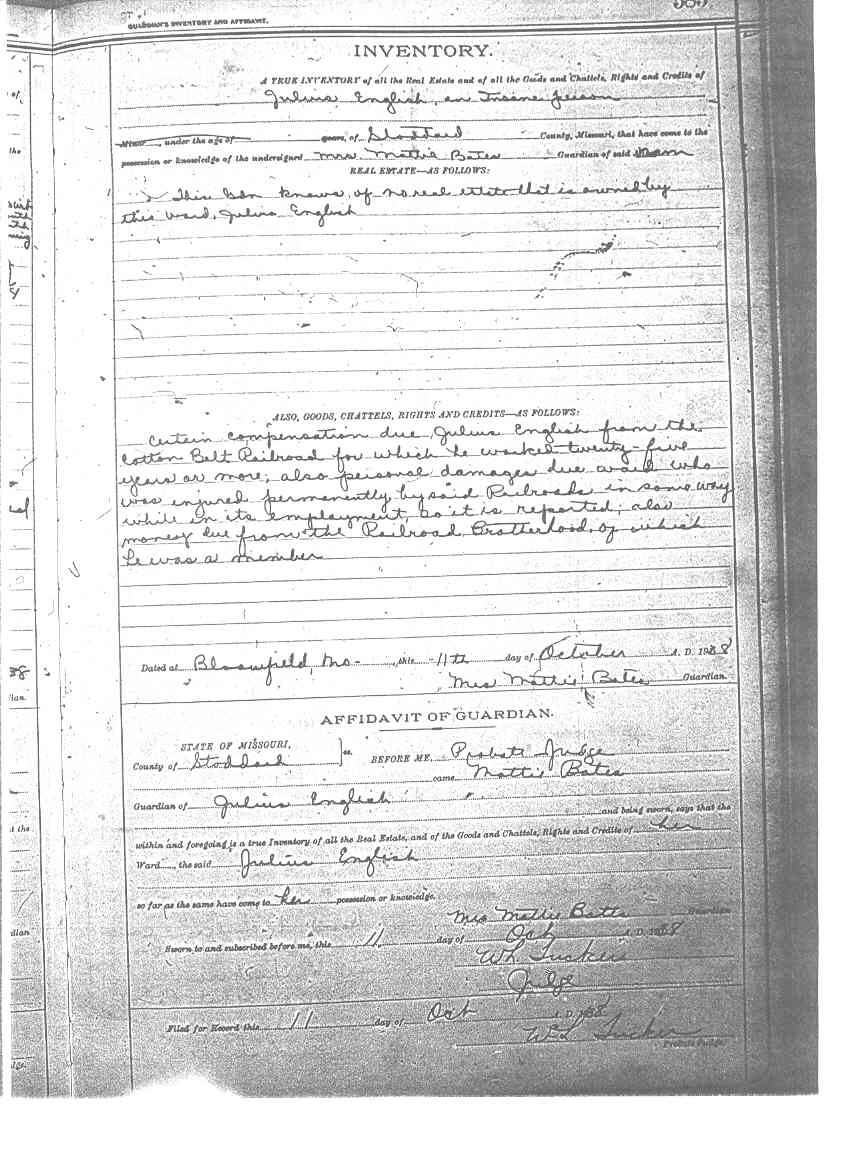 GUARDIAN'S INVENTORY AND AFFIDAVIT.
585
INVENTORY.
A TRUE INVENTORY of all the Real Estate and of all the Goods and Chattels, Rights and Credits of
Julius English, an Insane person
Minor, under the age of years, of Stoddard County, Missouri, that have come to the
possession or knowledge of the undersigned Mrs Mattie Bates Guardian of said
REAL ESTATE—AS FOLLOWS:
This Gdn knows of no real estate that is owned by
this ward, Julius English
ALSO, GOODS, CHATTELS, RIGHTS AND CREDITS—AS FOLLOWS:
Certain compensation due Julius English from the
Cotton Belt Railroad for which he worked twenty-five
years or more; also personal damages due ward who
was injured permanently by said Railroads in some way
while in its employment, so it is reported; also
money due from the Railroad Brotherhood of which
he was a member
Dated at Bloomfield, Mo - , this 11th day of October A. D. 19
Mrs Mattie Bates Guardian.
AFFIDAVIT OF GUARDIAN.
STATE OF MISSOURI,
County of Stoddard ss. BEFORE ME, Probate Judge
came Mattie Bates
Guardian of Julius English
and being sworn, says that the
within and foregoing is a true Inventory of all the Real Estate, and of the Goods and Chattels, Rights and Credits of her
Ward, the said Julius English
so far as the same have come to her possession or knowledge.
Mrs Mattie Bates Guardian
Sworn to and subscribed before me, this 11 day of Oct A. D. 19
Judge
Filed for Record this 11 day of Oct A. D.
Probate Judge.